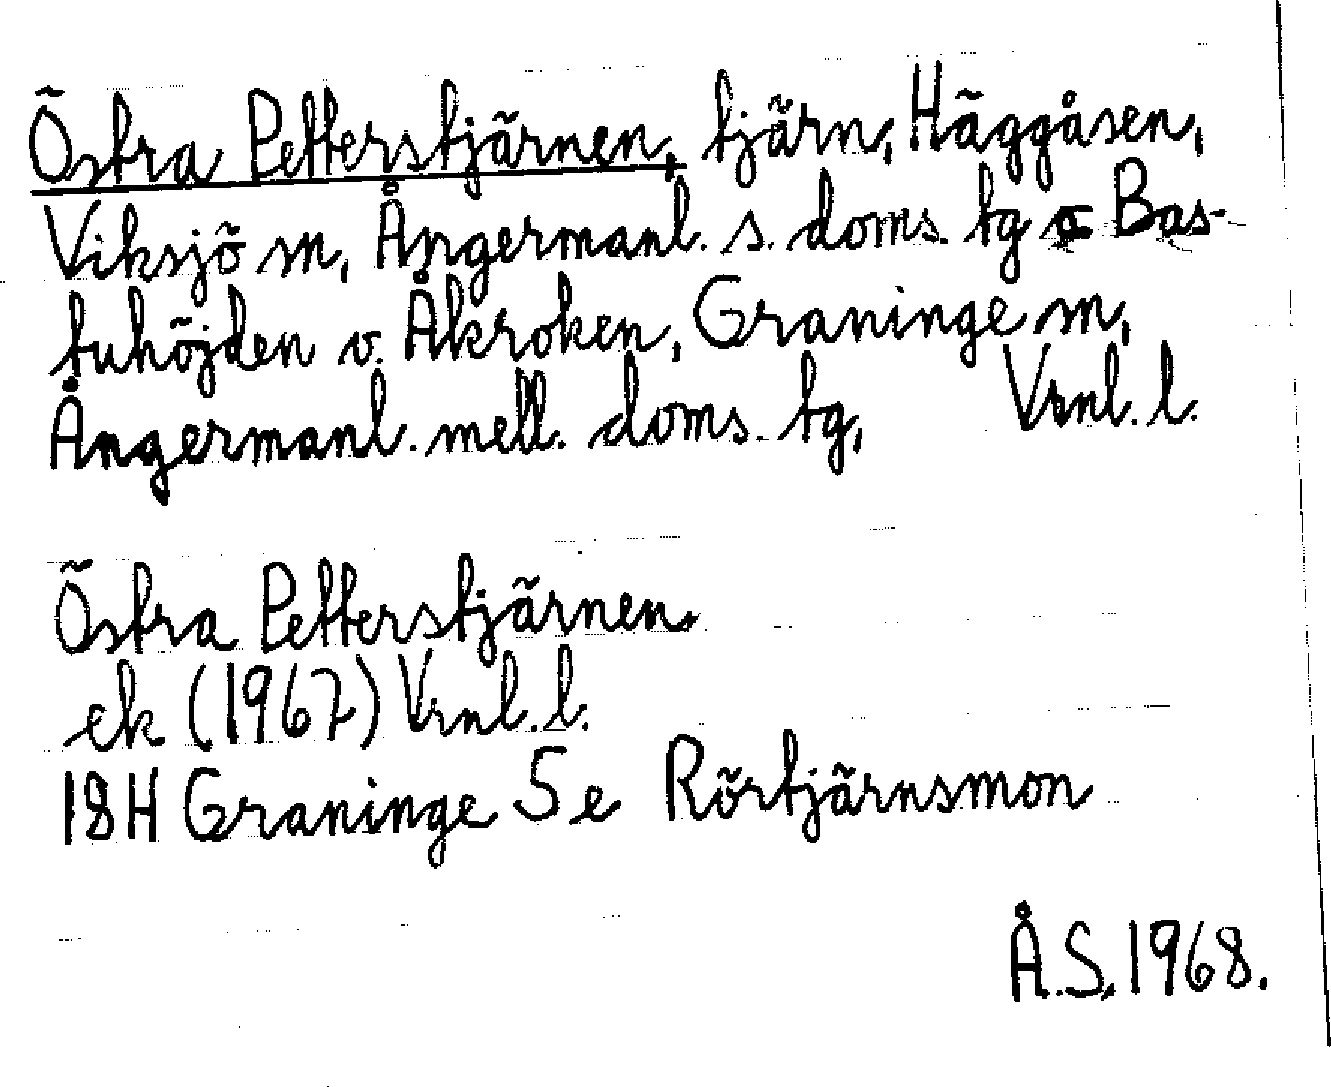 Östra Petterstjärnen, tjärn, Häggåsen,
Viksjö sn, Ångermanl. s. doms. tg o Bas-
tuhöjden o. Åkroken, Graninge sn,
Ångermanl. mell. doms. tg, Vrnl. l.
Östra Petterstjärnen.
ek (1967) Vrnl. l.
18H Graninge 5 e Rörtjärnsmon
Å.S, 1968.